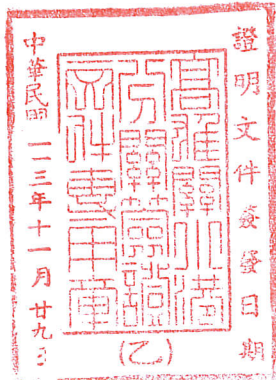 證明文件簽發日期
高雄關小港
分關簽證
文件專用章
中華民國一一三年十一月廿九日
(乙)